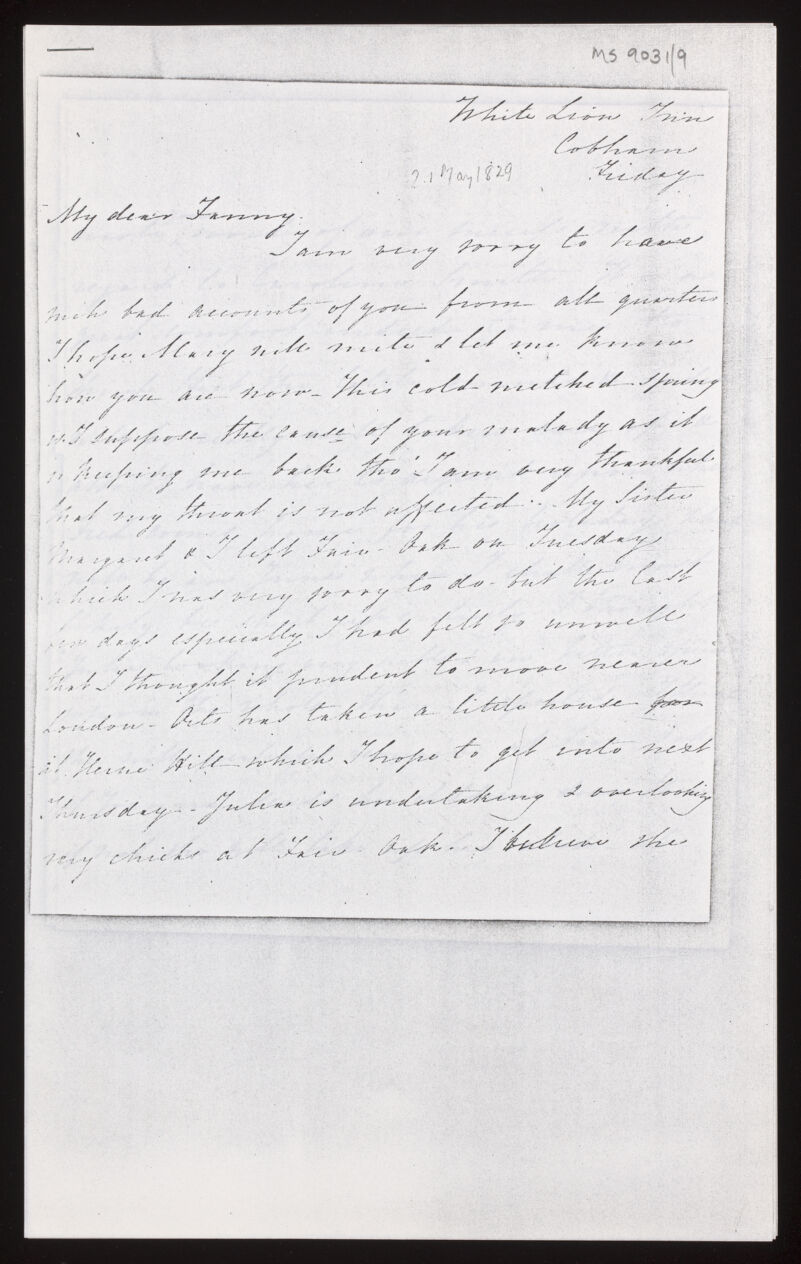 MS 9031/9
White Lion Inn
Cobham
21 May 1829 Friday
My dear Fanny.
I am very sorry to have
such bad accounts of you from all quarters
I hope Mary will write & let me know
how you are now - This cold wretched spring
is I suppose the cause of your malady as it
is keeping me back tho' I am very thankful
that my throat is not affected. My Sister
Margaret & I left Fair Oak on Tuesday
which I was very sorry to do - but the last
few days especially I had felt so unwell
that I thought it prudent to move nearer
London - has taken a little house for
at Herne Hill which I hope to get into next
Thursday - Julia is undertaking & overlooking
my chicks at Fair Oak. I believe she